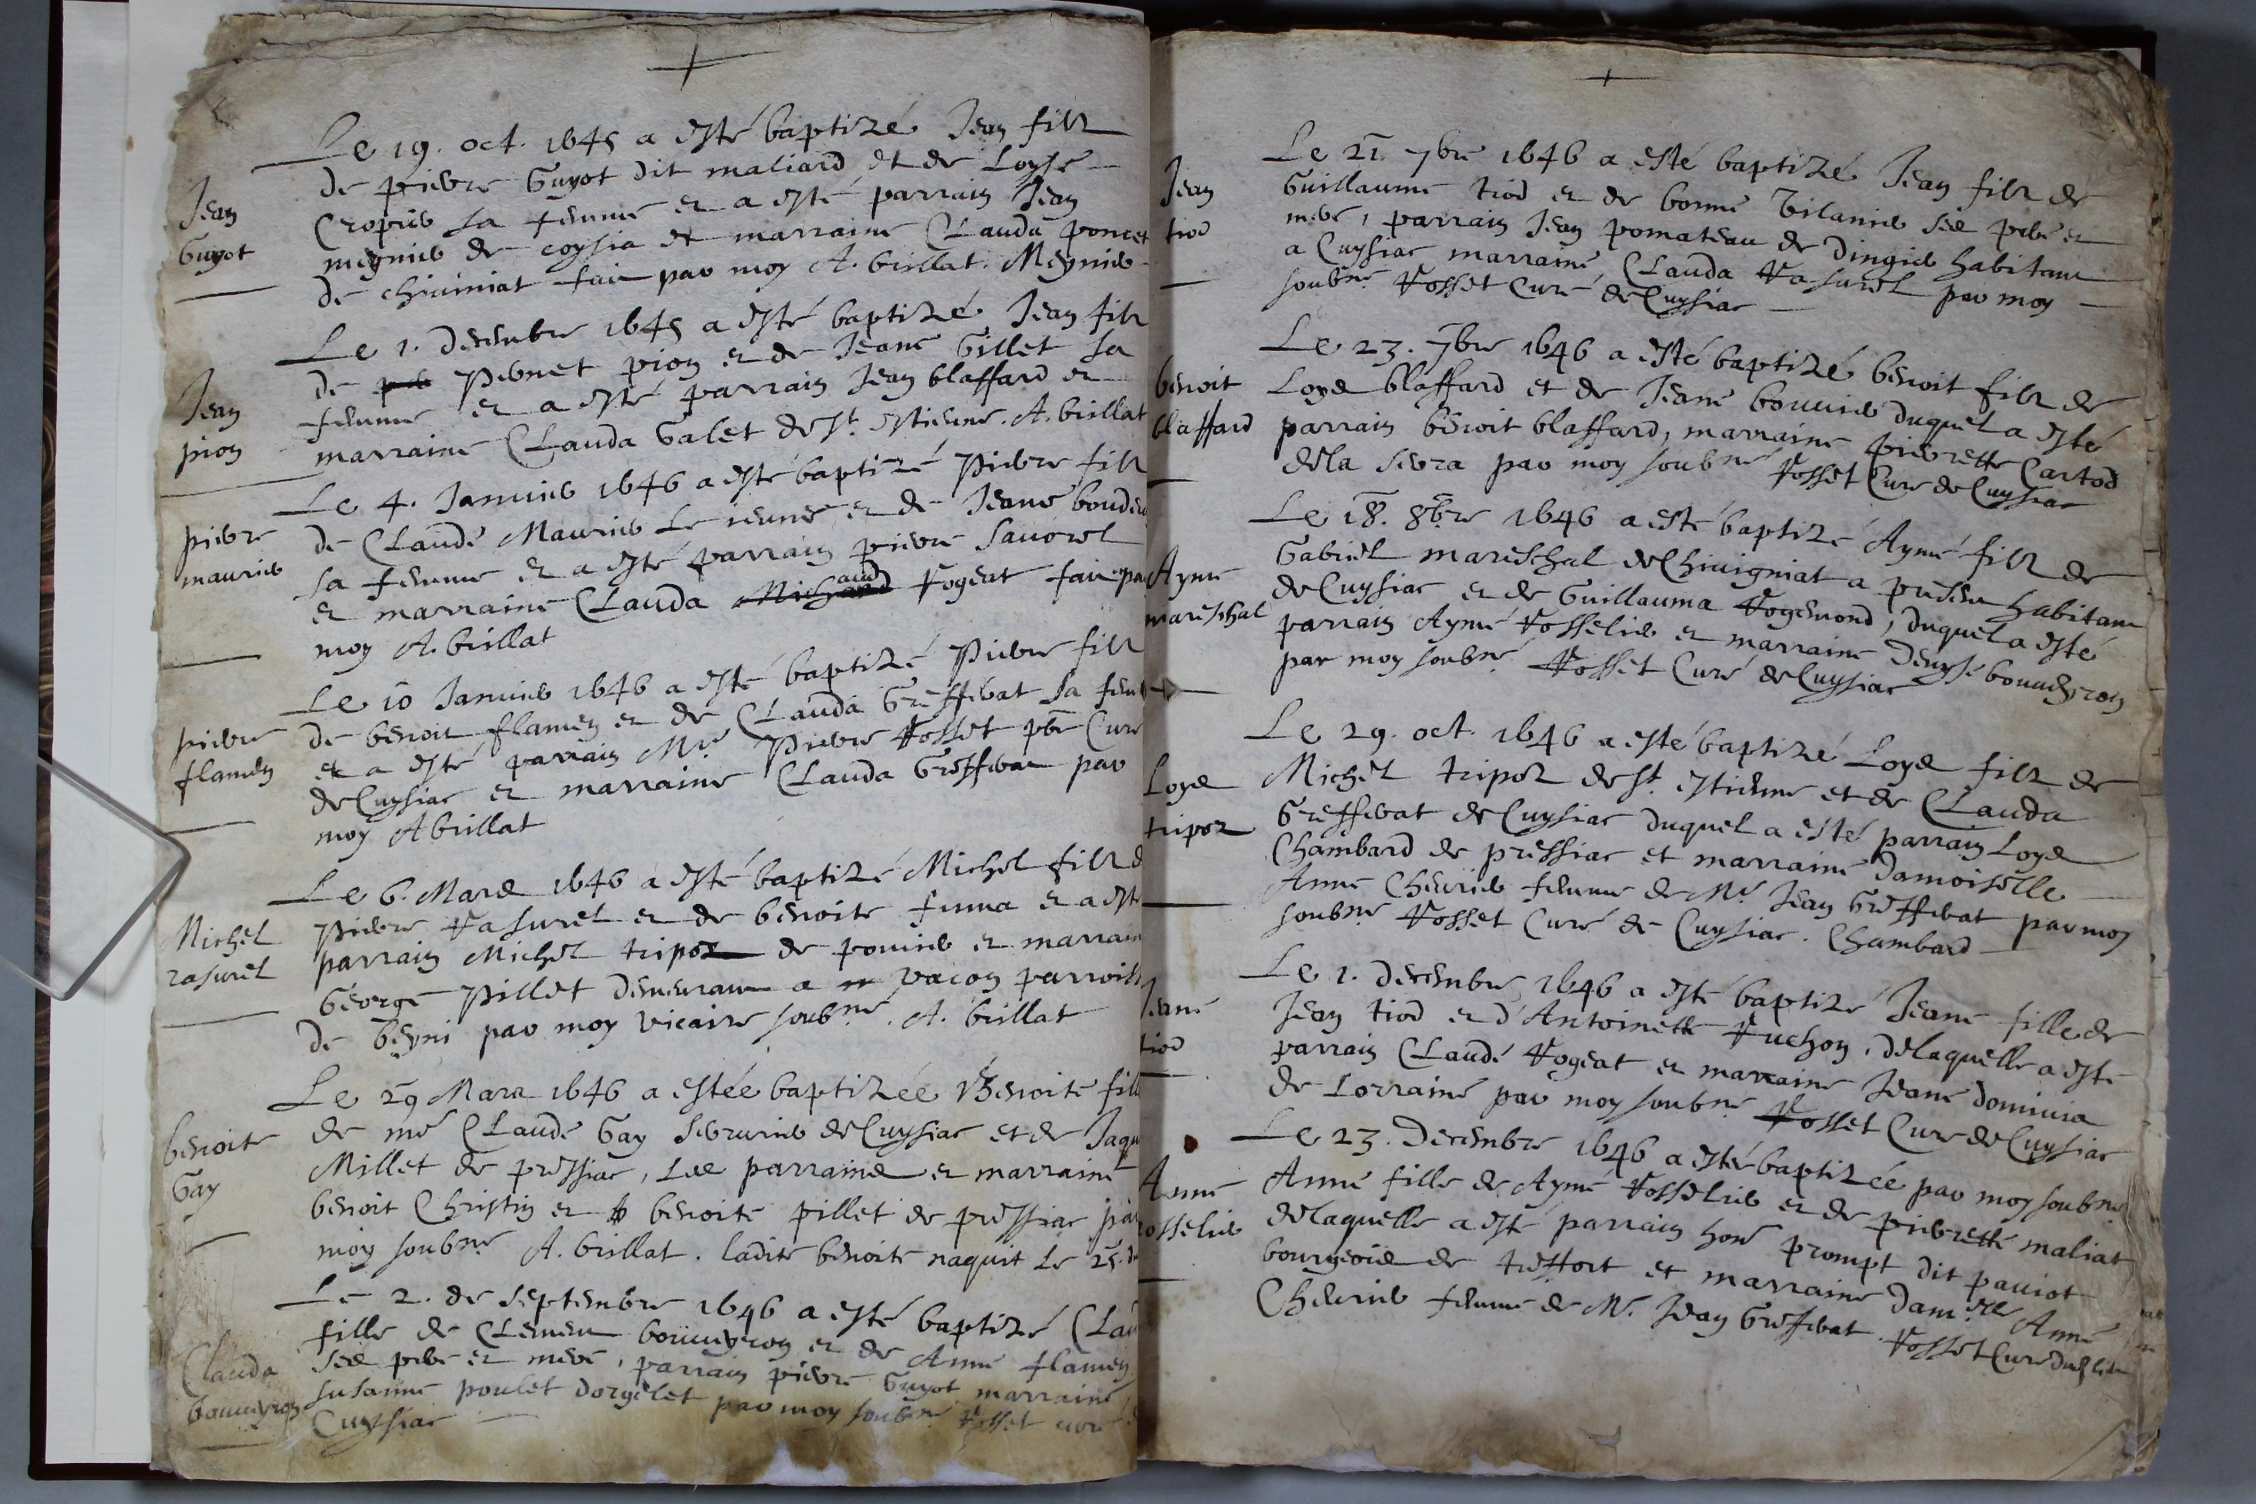 Jean
Guyot
Le 19. oct. 1645 a esté baptizé Jean filz
de pierre Guyot dit maliard et de Loyse
Cropier sa femme et a esté parrain Jean
meynier de coysia et marraine Clauda poncet
de chiviniat fait par moy A. brillat. Meynier
Jean
pion
Le 1. Decembre 1645 a esté baptizé Jean filz
de Pernet pion et de Jeane Gillet sa
femme et a esté parrain Jean blaffard et
marraine Clauda Galet de st. estienne. A. brillat
pierre
maurier
Le 4. Janvier 1646 a esté baptizé Pierre filz
de Claude Maurier le jeune et de Jeane
sa femme et a esté parrain pierre Savorel
et marraine Clauda Rogeat fait par
moy A. brillat
pierre
flamen
Le 10 Janvier 1646 a esté baptizé Pierre filz
de benoit flamen et de Clauda Grefferat sa
et a esté parrain Mre Pierre Rosset pbre Curé
de Cuysiac et marraine Clauda Grefferat par
moy A brillat
Michel
rasurel
Le 6. Mars 1646 a esté baptizé Michel filz d
Pierre Rasurel et de benoite et a esté
parrain Michel tripoz de et marrain
George Pillet demeurant a vacon parroiss
de beyni par moy vicaire soubné. A. brillat
benoite
Gay
Le 29 Mars 1646 a estée baptizée Benoite fill
de me Claude Gay de Cuysiac et de Jaqu
Millet de pressiac, les parrains et marraine
benoit Christin et benoite pillet de pressiac par
moy soubné A. brillat. ladite benoite naquit le 25.
Clauda
bouveyron
Le 2. de septembre 1646 a esté baptizé Clau
fille de Clement bouveyron et de Anne flamen
ses pere et mere, parrain pierre Guyot marraine
susanne poulet dorgelet par moy soubné Rosset curé d
Cuysiac
Jean
tiod
Le 21. 7bre 1646 a esté baptizé Jean filz de
Guillaume tiod et de bonne Vilanier ses pere et
mere, parrain Jean pomateau de Dingier habitant
a Cuysiac marraine Clauda Rasurel par moy
soubné Rosset Curé de Cuysiac
benoit
blaffard
Le 23. 7bre 1646 a esté baptizé benoit filz de
Loys blaffard et de Jeane bouvier duquel a esté
parrain benoit blaffard, marraine pierrette Cartod
dela serra par moy soubné Rosset Curé de Cuysiac
Aymé
mareschal
Le 18. 8bre 1646 a esté baptizé Aymé filz de
Gabriel mareschal de Chivigniat a present habitant
de Cuysiac et de Guillauma Rogemond, duquel a esté
parrain Aymé Rosselier et marraine Denyse bouveyron
par moy soubné Rosset Curé de Cuysiac
Loys
tripoz
Le 29. oct. 1646 a esté baptizé Loys filz de
Michel tripoz de st. estienne et de Clauda
Grefferat de Cuysiac duquel a esté parrain Loys
Chambard de pressiac et marraine Damoiselle
Anne Chevrier femme de Mr. Jean Grefferat par moy
soubné Rosset Curé de Cuysiac. Chambard
Jeane
tiod
Le 1. decembre 1646 a esté baptizé Jeane fille de
Jean tiod et d'Antoinette Ruchon, delaquelle a esté
parrain Claude Rogeat et marraine Jeane
de Lorraine par moy soubné Rosset Curé de Cuysiac
Anne
rosselier
Le 23. Decembre 1646 a esté baptizée par moy soubné
Anne fille de Aymé Rosselier et de pierrette maliat
delaquelle a esté parrain hone prompt dit paviot
bourgeois de treffort et marraine Dam.elle Anne
Chevrier femme de Mr. Jean Grefferat. Rosset Curé dud lieu